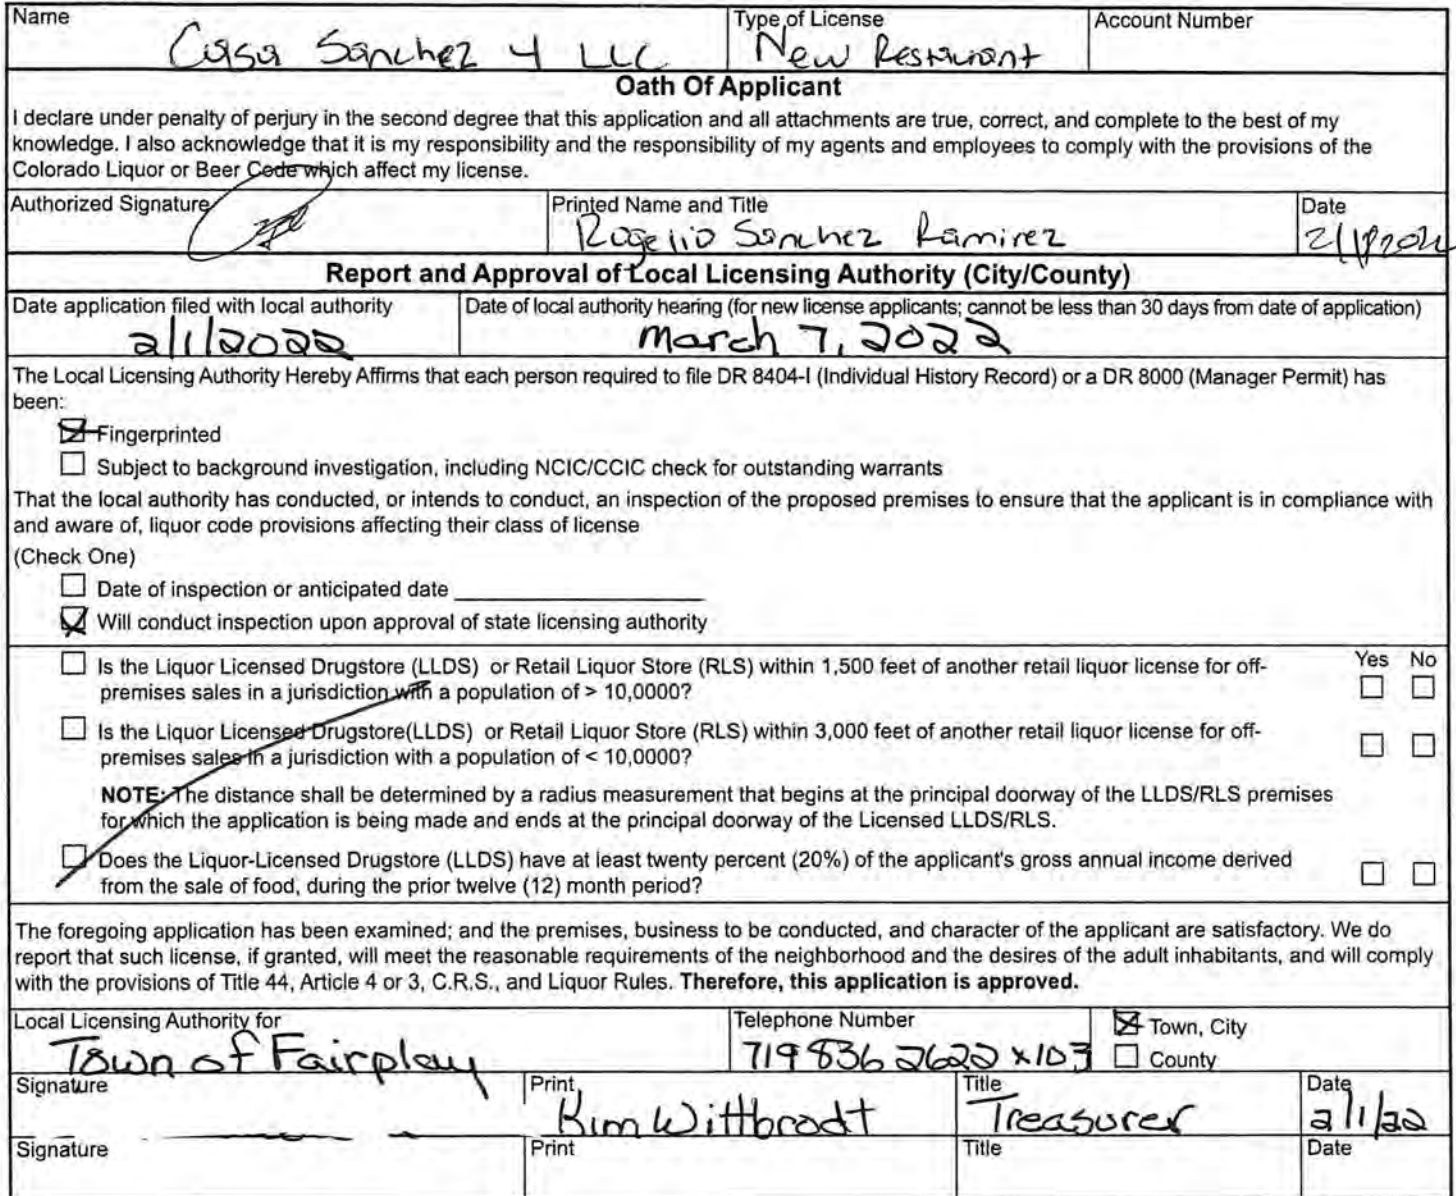 Name
Type of License
Account Number
Casa Sanchez 4 LLC
New Restaurant
Oath Of Applicant
I declare under penalty of perjury in the second degree that this application and all attachments are true, correct, and complete to the best of my
knowledge. I also acknowledge that it is my responsibility and the responsibility of my agents and employees to comply with the provisions of the
Colorado Liquor or Beer Code which affect my license.
Authorized Signature
Printed Name and Title
Date
Rogelio Sanchez Ramirez
Report and Approval of Local Licensing Authority (City/County)
Date application filed with local authority
Date of local authority hearing (for new license applicants; cannot be less than 30 days from date of application)
2/1/2022
March 7, 2022
The Local Licensing Authority Hereby Affirms that each person required to file DR 8404-I (Individual History Record) or a DR 8000 (Manager Permit) has
been:
Fingerprinted
Subject to background investigation, including NCIC/CCIC check for outstanding warrants
That the local authority has conducted, or intends to conduct, an inspection of the proposed premises to ensure that the applicant is in compliance with
and aware of, liquor code provisions affecting their class of license
(Check One)
Date of inspection or anticipated date
Will conduct inspection upon approval of state licensing authority
Yes No
Is the Liquor Licensed Drugstore (LLDS) or Retail Liquor Store (RLS) within 1,500 feet of another retail liquor license for off-
premises sales in a jurisdiction with a population of > 10,0000?
Is the Liquor Licensed Drugstore(LLDS) or Retail Liquor Store (RLS) within 3,000 feet of another retail liquor license for off-
premises sales in a jurisdiction with a population of < 10,0000?
NOTE: The distance shall be determined by a radius measurement that begins at the principal doorway of the LLDS/RLS premises
for which the application is being made and ends at the principal doorway of the Licensed LLDS/RLS.
Does the Liquor-Licensed Drugstore (LLDS) have at least twenty percent (20%) of the applicant's gross annual income derived
from the sale of food, during the prior twelve (12) month period?
The foregoing application has been examined; and the premises, business to be conducted, and character of the applicant are satisfactory. We do
report that such license, if granted, will meet the reasonable requirements of the neighborhood and the desires of the adult inhabitants, and will comply
with the provisions of Title 44, Article 4 or 3, C.R.S., and Liquor Rules. Therefore, this application is approved.
Local Licensing Authority for
Telephone Number
Town, City
Town of Fairplay
719 836 2622 x103
County
Signature
Print
Title
Date
Kim Wittbrodt
Treasurer
2/1/22
Signature
Print
Title
Date